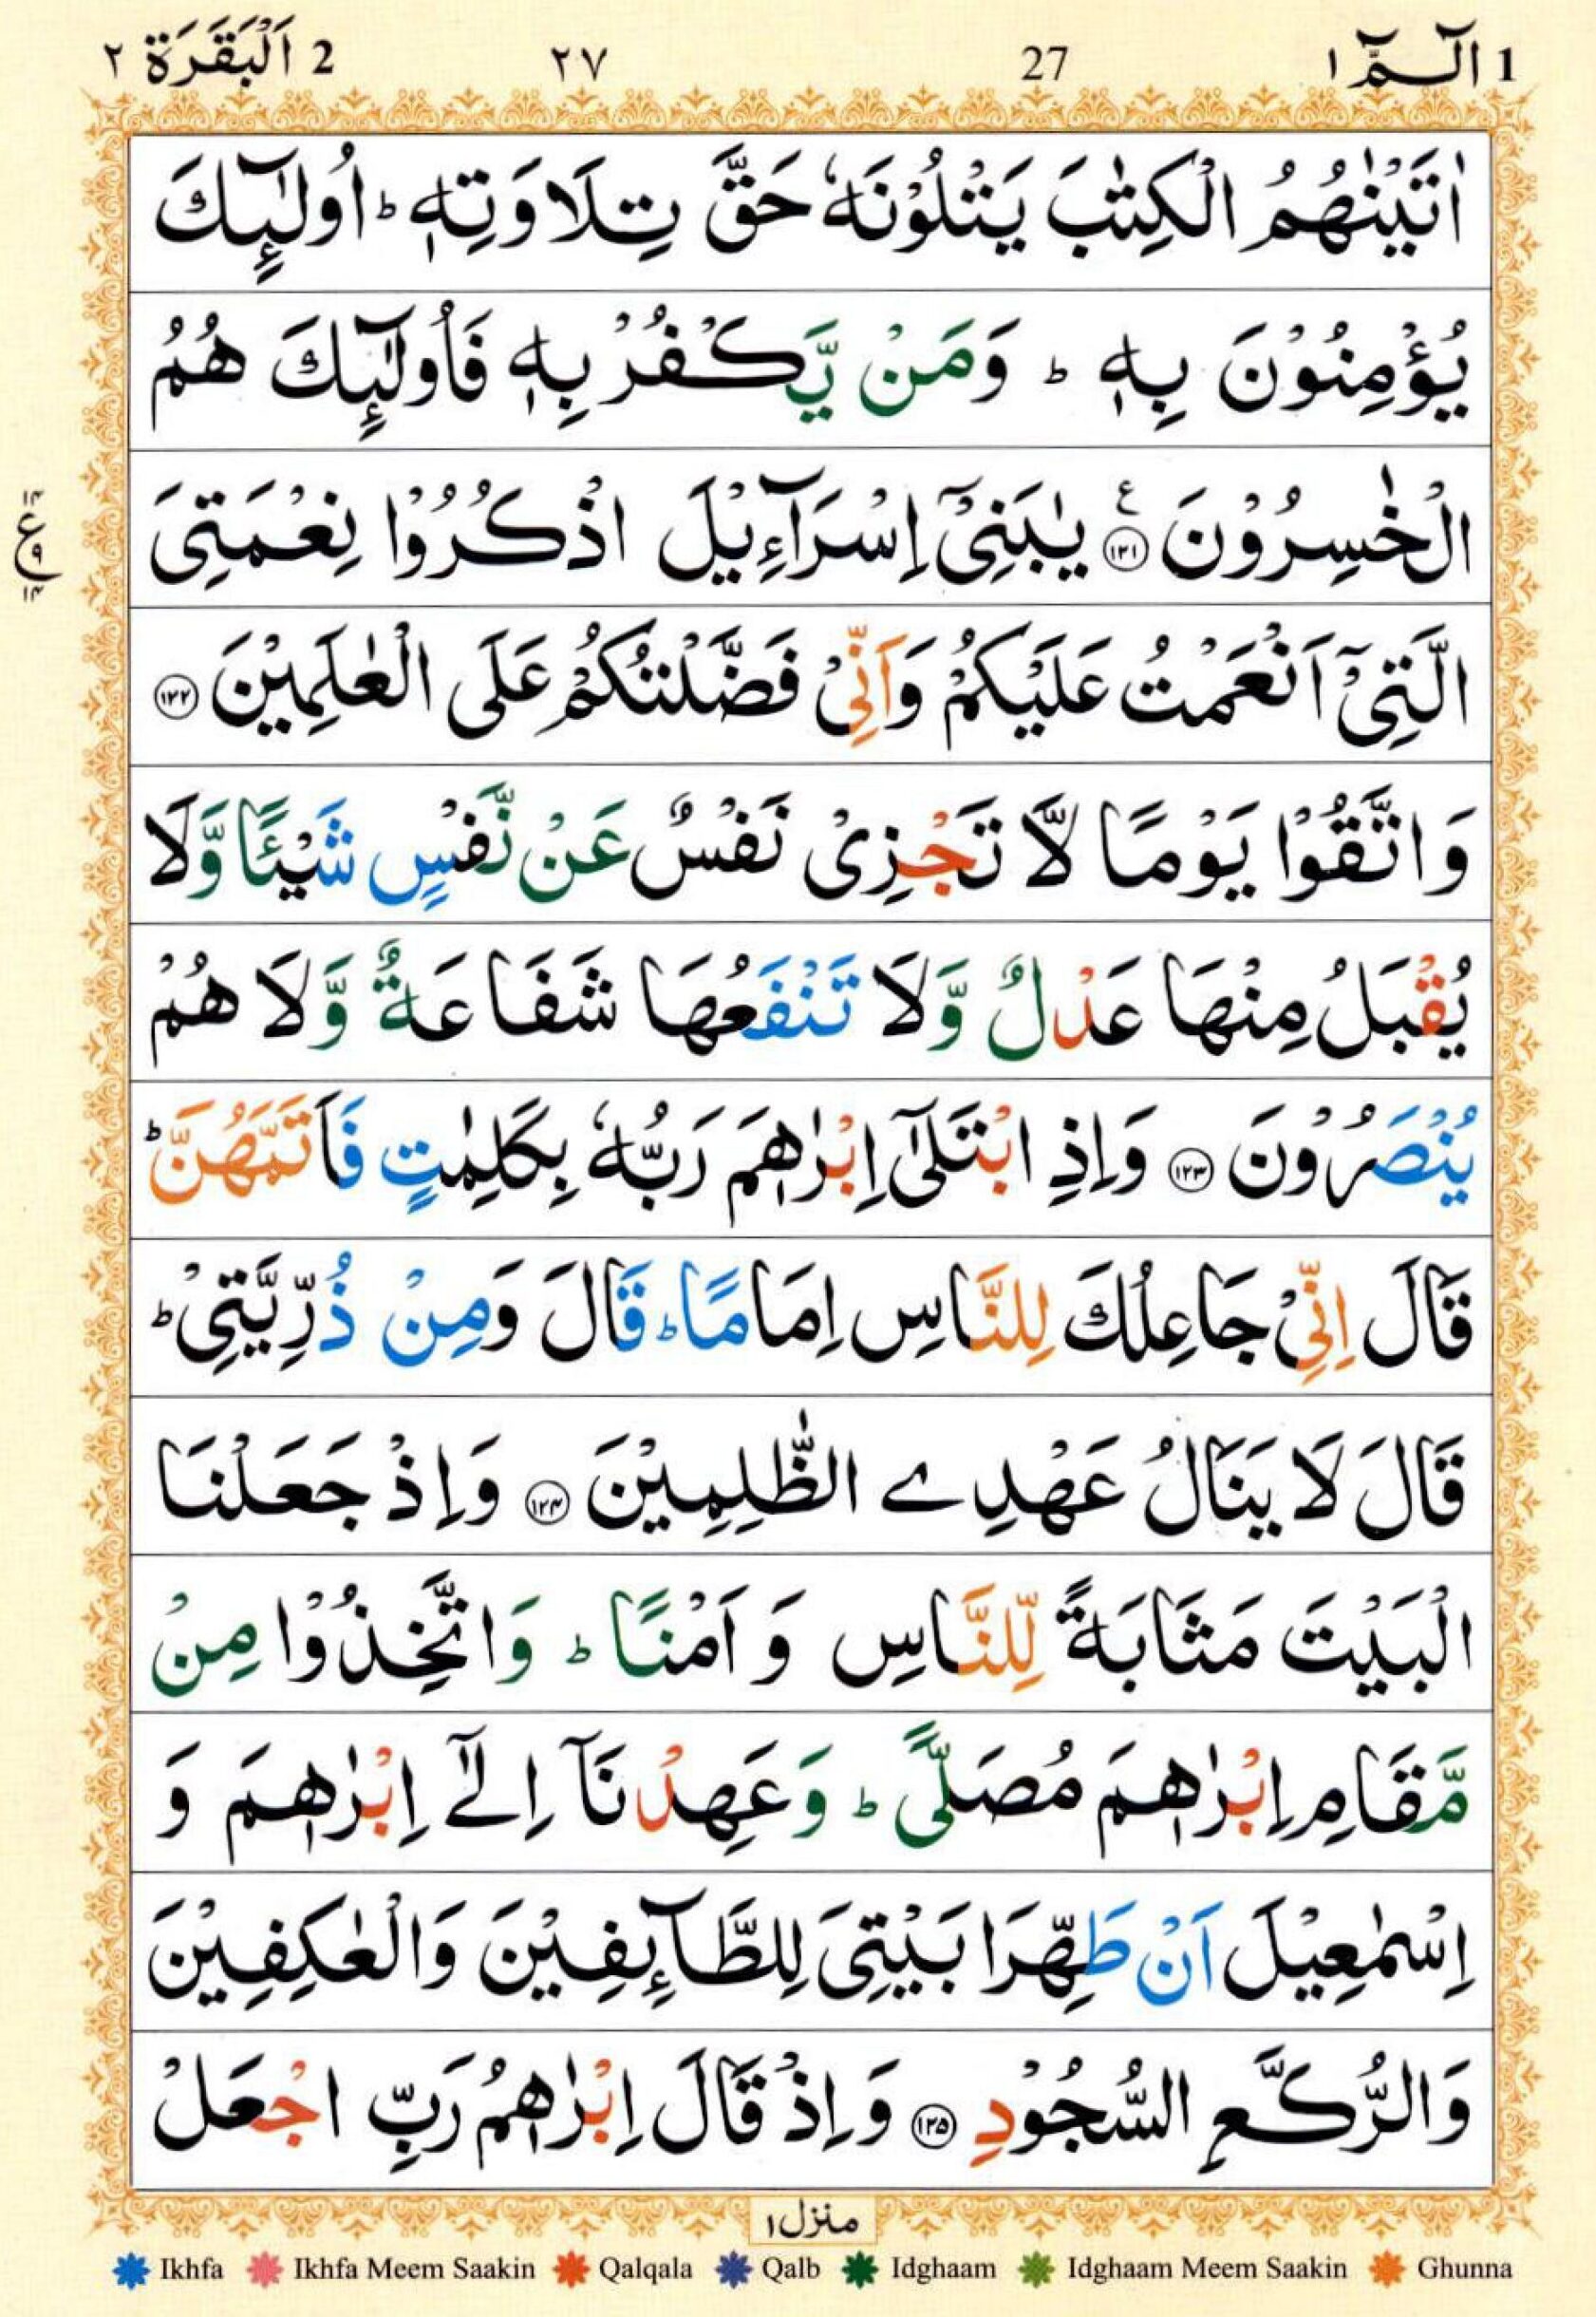 1 الٓـمّٓ ١ 27 ٢٧ 2 اَلْبَقَرَة ٢
اٰتَيْنٰهُمُ الْكِتٰبَ يَتْلُوْنَهٗ حَقَّ تِلَاوَتِهٖ ؕ اُولٰٓئِكَ
يُؤْمِنُوْنَ بِهٖ ؕ وَمَنْ يَّكْفُرْ بِهٖ فَاُولٰٓئِكَ هُمُ
الْخٰسِرُوْنَ ۧ ﴿١٢١﴾ يٰبَنِىْۤ اِسْرَآءِيْلَ اذْكُرُوْا نِعْمَتِىَ
الَّتِىْۤ اَنْعَمْتُ عَلَيْكُمْ وَاَنِّىْ فَضَّلْتُكُمْ عَلَى الْعٰلَمِيْنَ ﴿١٢٢﴾
وَاتَّقُوْا يَوْمًا لَّا تَجْزِىْ نَفْسٌ عَنْ نَّفْسٍ شَيْئًا وَّلَا
يُقْبَلُ مِنْهَا عَدْلٌ وَّلَا تَنْفَعُهَا شَفَاعَةٌ وَّلَا هُمْ
يُنْصَرُوْنَ ﴿١٢٣﴾ وَاِذِ ابْتَلٰٓى اِبْرٰهٖمَ رَبُّهٗ بِكَلِمٰتٍ فَاَتَمَّهُنَّ ؕ
قَالَ اِنِّىْ جَاعِلُكَ لِلنَّاسِ اِمَامًا ؕ قَالَ وَمِنْ ذُرِّيَّتِىْ ؕ
قَالَ لَا يَنَالُ عَهْدِے الظّٰلِمِيْنَ ﴿١٢٤﴾ وَاِذْ جَعَلْنَا
الْبَيْتَ مَثَابَةً لِّلنَّاسِ وَ اَمْنًا ؕ وَاتَّخِذُوْا مِنْ
مَّقَامِ اِبْرٰهٖمَ مُصَلًّى ؕ وَعَهِدْنَآ اِلٰٓے اِبْرٰهٖمَ وَ
اِسْمٰعِيْلَ اَنْ طَهِّرَا بَيْتِىَ لِلطَّآئِفِيْنَ وَالْعٰكِفِيْنَ
وَالرُّكَّعِ السُّجُوْدِ ﴿١٢٥﴾ وَاِذْ قَالَ اِبْرٰهٖمُ رَبِّ اجْعَلْ
١٤
ع ٩
١٤
منزل ١
Ikhfa Ikhfa Meem Saakin Qalqala Qalb Idghaam Idghaam Meem Saakin Ghunna